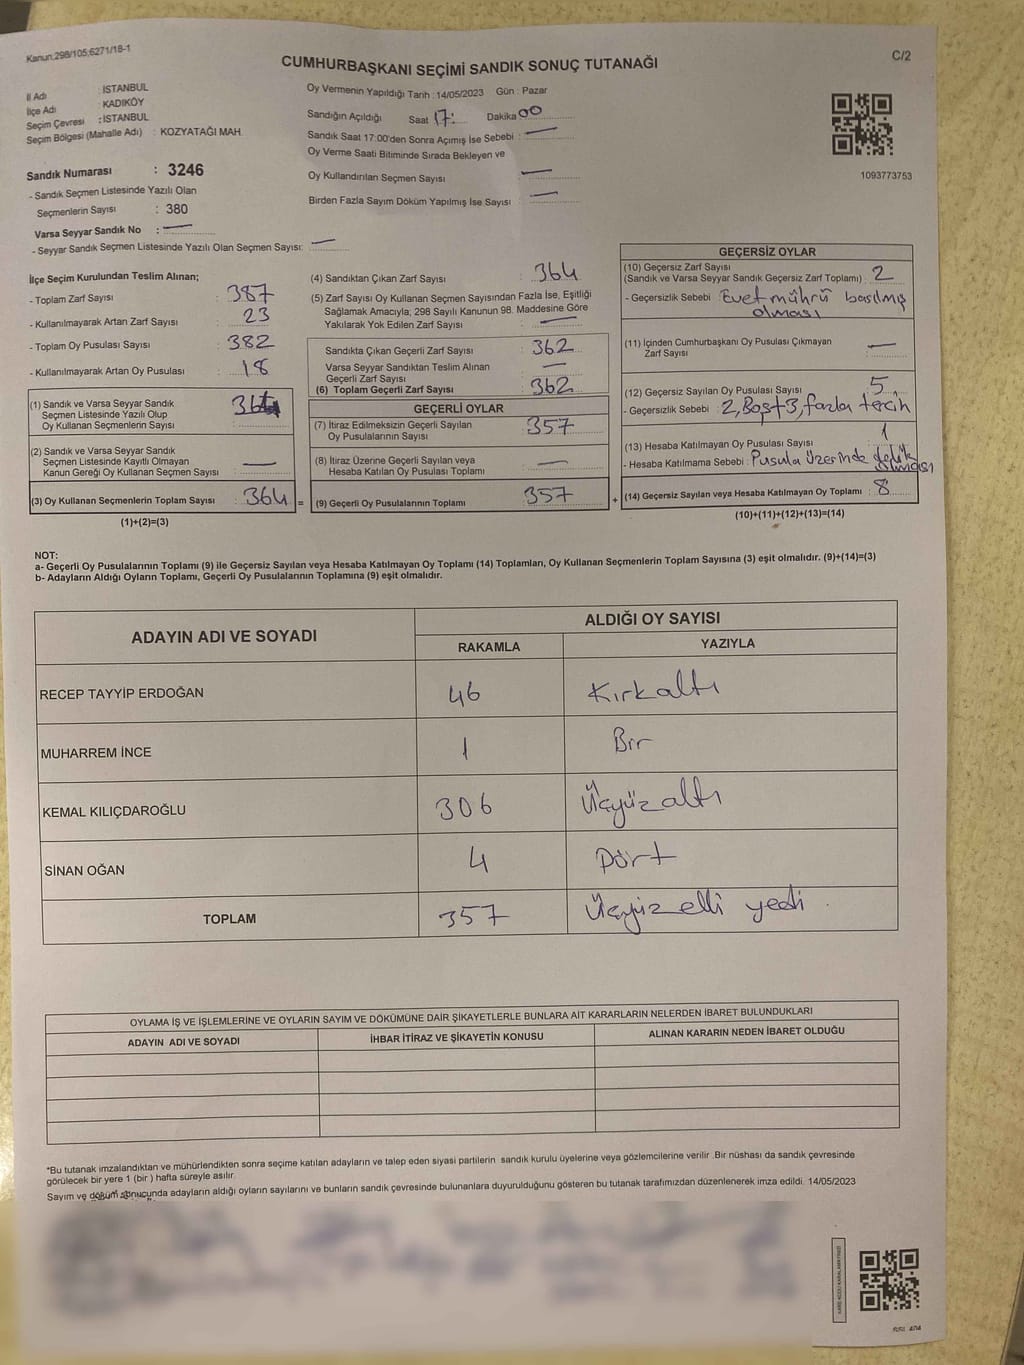 Kanun:298/105;6271/18-1
CUMHURBAŞKANI SEÇİMİ SANDIK SONUÇ TUTANAĞI
C/2
İl Adı : İSTANBUL
İlçe Adı : KADIKÖY
Seçim Çevresi : İSTANBUL
Seçim Bölgesi (Mahalle Adı) : KOZYATAĞI MAH.
Oy Vermenin Yapıldığı Tarih : 14/05/2023 Gün : Pazar
Sandığın Açıldığı Saat 17: Dakika 00
Sandık Saat 17:00'den Sonra Açımış İse Sebebi : —
Oy Verme Saati Bitiminde Sırada Bekleyen ve
Oy Kullandırılan Seçmen Sayısı : —
Birden Fazla Sayım Döküm Yapılmış İse Sayısı : —
1093773753
Sandık Numarası : 3246
- Sandık Seçmen Listesinde Yazılı Olan
Seçmenlerin Sayısı : 380
Varsa Seyyar Sandık No : —
- Seyyar Sandık Seçmen Listesinde Yazılı Olan Seçmen Sayısı: —
İlçe Seçim Kurulundan Teslim Alınan;
- Toplam Zarf Sayısı : 387
- Kullanılmayarak Artan Zarf Sayısı : 23
- Toplam Oy Pusulası Sayısı : 382
- Kullanılmayarak Artan Oy Pusulası : 18
(1) Sandık ve Varsa Seyyar Sandık
Seçmen Listesinde Yazılı Olup
Oy Kullanan Seçmenlerin Sayısı :
(2) Sandık ve Varsa Seyyar Sandık
Seçmen Listesinde Kayıtlı Olmayan
Kanun Gereği Oy Kullanan Seçmen Sayısı : —
(3) Oy Kullanan Seçmenlerin Toplam Sayısı : 364 =
(1)+(2)=(3)
(4) Sandıktan Çıkan Zarf Sayısı : 364
(5) Zarf Sayısı Oy Kullanan Seçmen Sayısından Fazla İse, Eşitliği
Sağlamak Amacıyla; 298 Sayılı Kanunun 98. Maddesine Göre
Yakılarak Yok Edilen Zarf Sayısı : —
Sandıkta Çıkan Geçerli Zarf Sayısı : 362
Varsa Seyyar Sandıktan Teslim Alınan
Geçerli Zarf Sayısı : —
(6) Toplam Geçerli Zarf Sayısı : 362
GEÇERLİ OYLAR
(7) İtiraz Edilmeksizin Geçerli Sayılan
Oy Pusulalarının Sayısı : 357
(8) İtiraz Üzerine Geçerli Sayılan veya
Hesaba Katılan Oy Pusulası Toplamı : —
(9) Geçerli Oy Pusulalarının Toplamı : 357 +
GEÇERSİZ OYLAR
(10) Geçersiz Zarf Sayısı
(Sandık ve Varsa Seyyar Sandık Geçersiz Zarf Toplamı) : 2
- Geçersizlik Sebebi : Evet mührü basılmış
olması
(11) İçinden Cumhurbaşkanı Oy Pusulası Çıkmayan
Zarf Sayısı : —
(12) Geçersiz Sayılan Oy Pusulası Sayısı : 5
- Geçersizlik Sebebi : 2, Boş + 3, fazla tercih
(13) Hesaba Katılmayan Oy Pusulası Sayısı : 1
- Hesaba Katılmama Sebebi : Pusula üzerinde
olması
(14) Geçersiz Sayılan veya Hesaba Katılmayan Oy Toplamı : 8
(10)+(11)+(12)+(13)=(14)
NOT:
a- Geçerli Oy Pusulalarının Toplamı (9) ile Geçersiz Sayılan veya Hesaba Katılmayan Oy Toplamı (14) Toplamları, Oy Kullanan Seçmenlerin Toplam Sayısına (3) eşit olmalıdır. (9)+(14)=(3)
b- Adayların Aldığı Oyların Toplamı, Geçerli Oy Pusulalarının Toplamına (9) eşit olmalıdır.
ADAYIN ADI VE SOYADI
ALDIĞI OY SAYISI
RAKAMLA YAZIYLA
RECEP TAYYİP ERDOĞAN 46 Kırkaltı
MUHARREM İNCE 1 Bir
KEMAL KILIÇDAROĞLU 306 Üçyüzaltı
SİNAN OĞAN 4 Dört
TOPLAM 357 Üçyüzelli yedi
OYLAMA İŞ VE İŞLEMLERİNE VE OYLARIN SAYIM VE DÖKÜMÜNE DAİR ŞİKAYETLERLE BUNLARA AİT KARARLARIN NELERDEN İBARET BULUNDUKLARI
ADAYIN ADI VE SOYADI İHBAR İTİRAZ VE ŞİKAYETİN KONUSU ALINAN KARARIN NEDEN İBARET OLDUĞU
*Bu tutanak imzalandıktan ve mühürlendikten sonra seçime katılan adayların ve talep eden siyasi partilerin sandık kurulu üyelerine veya gözlemcilerine verilir .Bir nüshası da sandık çevresinde
görülecek bir yere 1 (bir ) hafta süreyle asılır.
Sayım ve döküm sonucunda adayların aldığı oyların sayılarını ve bunların sandık çevresinde bulunanlara duyurulduğunu gösteren bu tutanak tarafımızdan düzenlenerek imza edildi. 14/05/2023